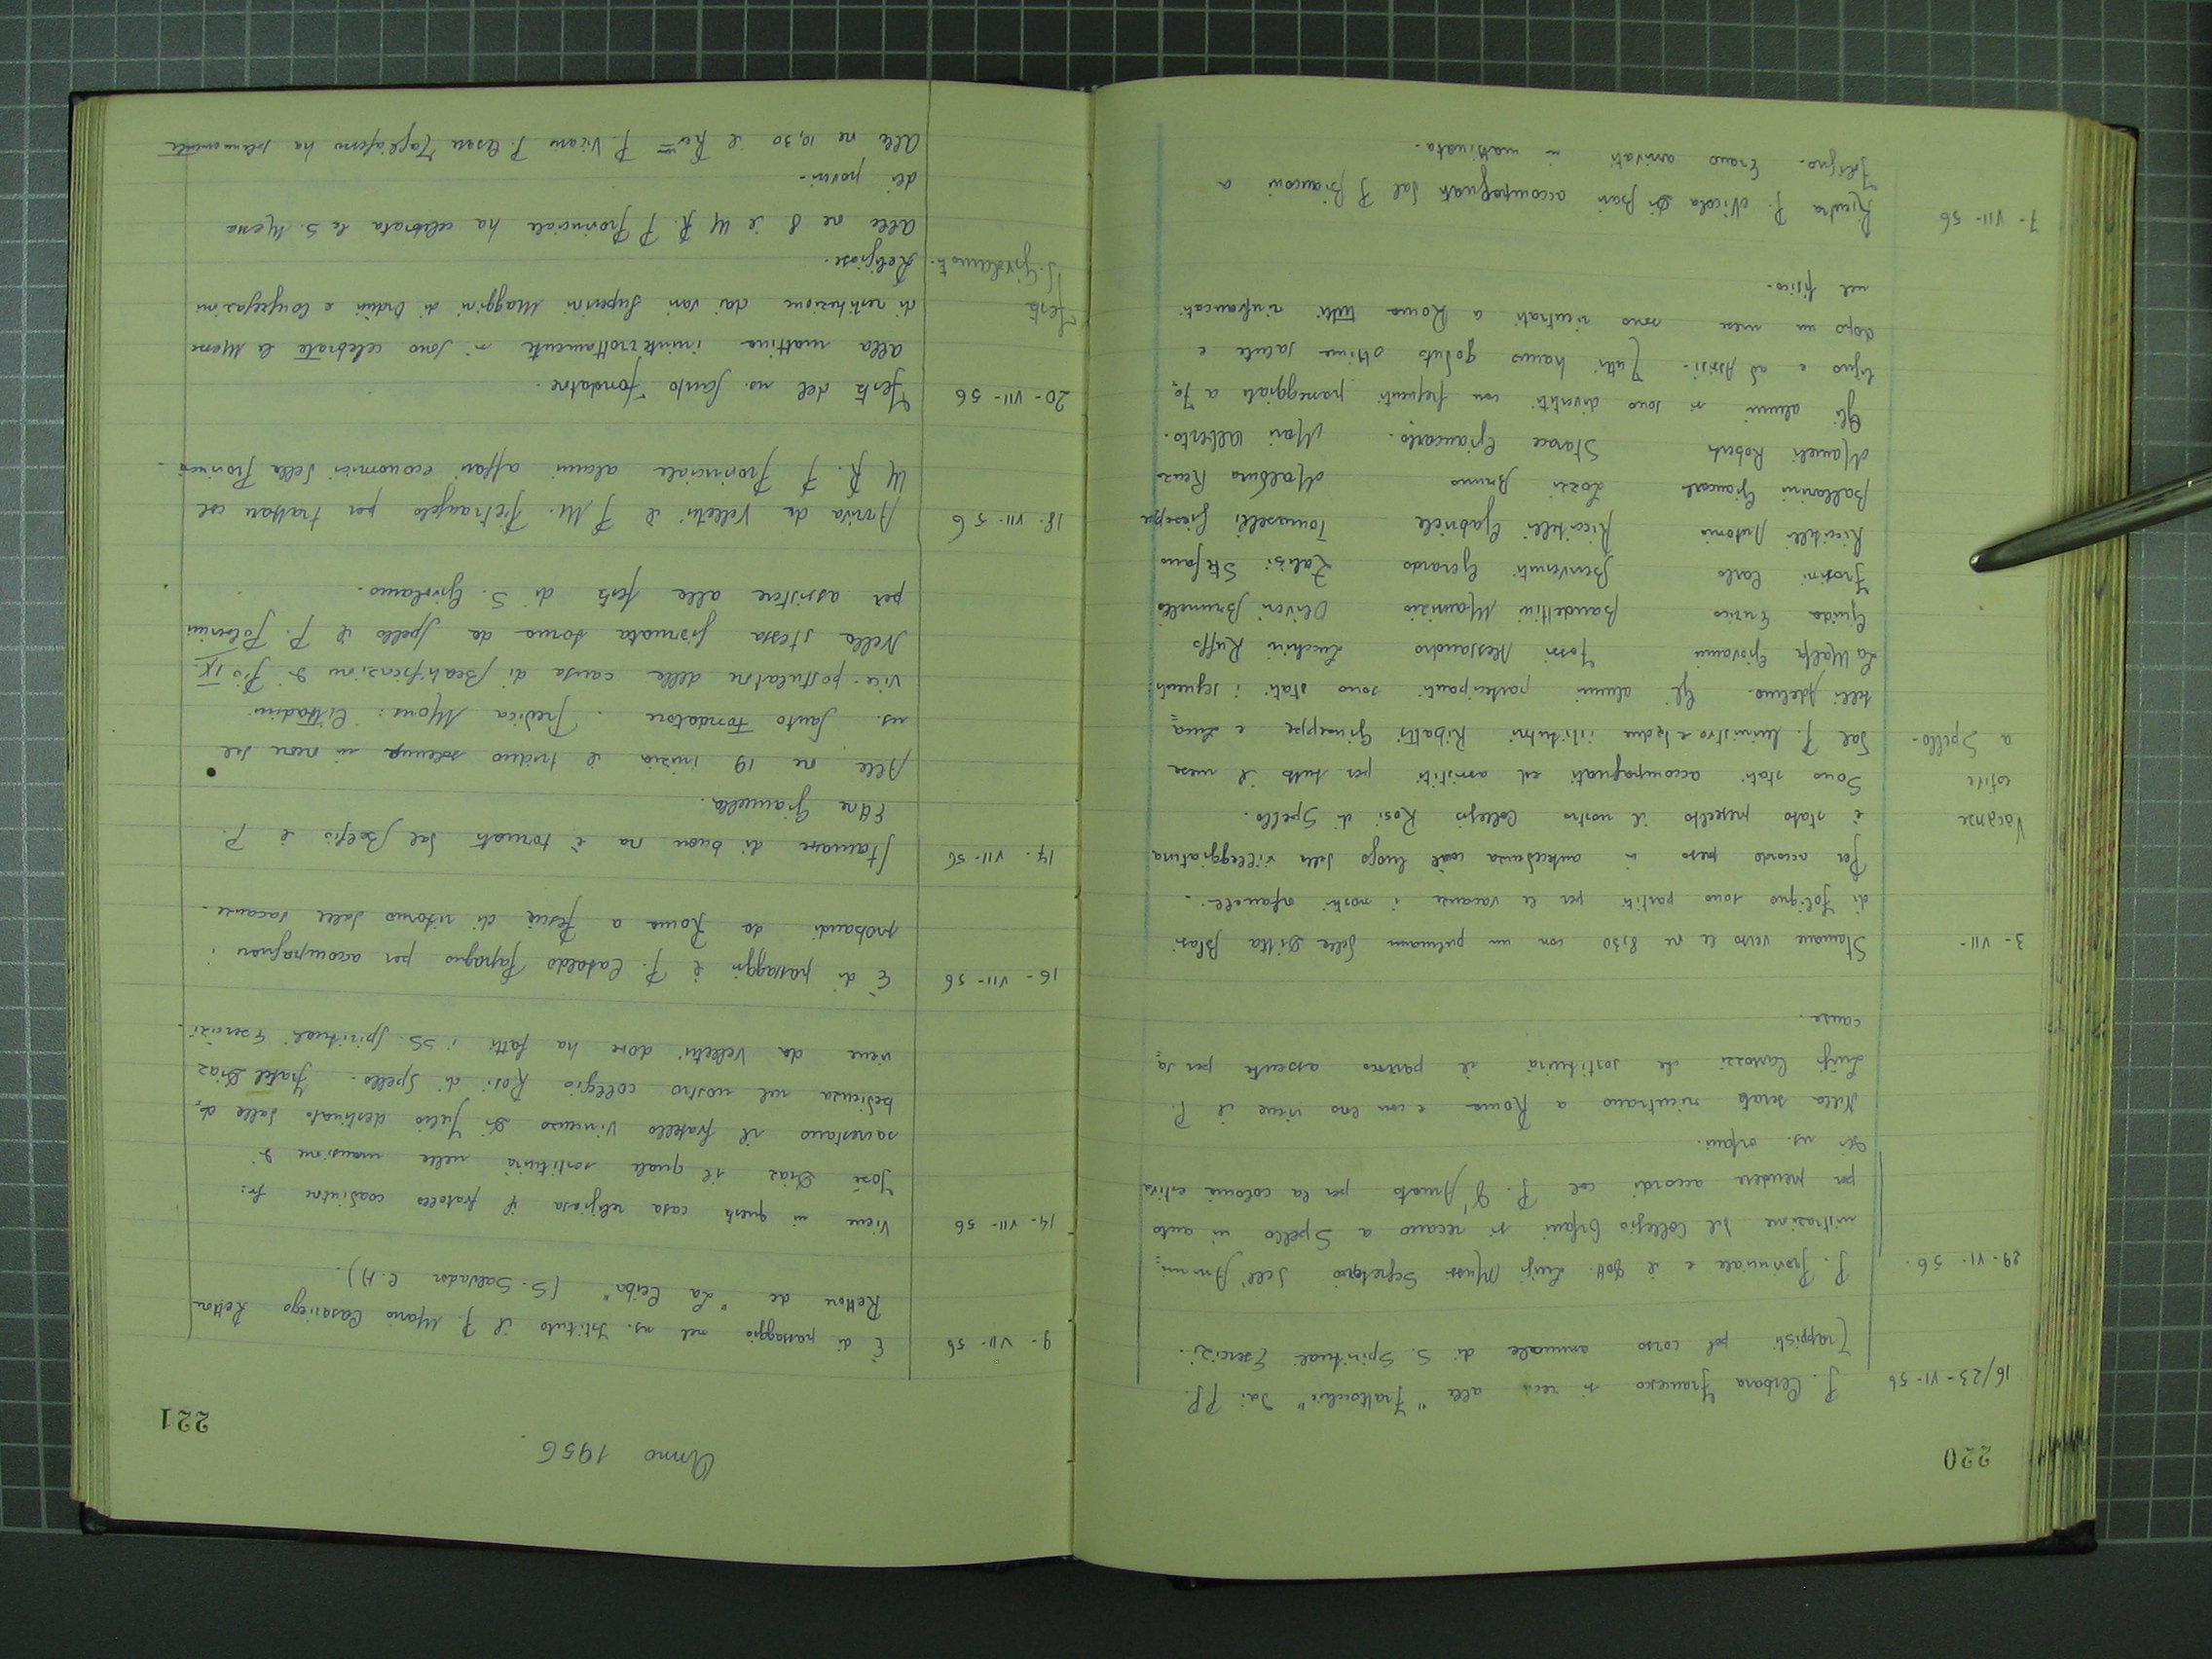 220
16/23-VI-56
P. Cerbara Francesco si reca alle "Frattocchie" dai PP.
Trappisti pel corso annuale di S. Spirituali Esercizi.
29-VI-56.
P. Provinciale e il Dott. Luigi Mussi Segretario dell'Ammi=
nistrazione del Collegio Orfani si recano a Spello in auto
per prendere accordi col P. D'Amato per la colonia estiva
dei ns. orfani.
Nella serata rientrano a Roma e con loro viene il P.
Luigi che sostituirà il parroco assente per sa=
cause.
3-VII-
Stamane verso le ore 8,30 con un pulmann della Ditta Blasi
di Foligno sono partiti per le vacanze i nostri orfanelli.
Per accordo preso in antecedenza cole luogo della villeggiatura
Vacanze
estive
a Spello-
è stato prescelto il nostro Collegio Rosi di Spello.
Sono stati accompagnati ed assistiti per tutto il mese
dal P. Ministro e da due istitutori Ribatti Giuseppe e
telli Adelmo. Gli alunni partecipanti sono stati i seguenti:
La Malfa Giovanni Fossi Alessandro Lucchini Ruffo
Guida Enrico Bandettini Maurizio Olivieri Brunello
Frosini Carlo Benvenuti Gerardo Stefano
Riccitelli Antonio Riccitelli Gabriele Tomaselli Giuseppe
Ballarini Giancarlo Lozzi Bruno Renzo
Mameli Roberto Storace Giancarlo. Mori Alberto.
Gli alunni si sono divertiti con frequenti passeggiate a Fo=
ligno e ad Assisi- Tutti hanno goduto ottima salute e
dopo un mese sono rientrati a Roma tutti rinfrancati
nel fisico.
7-VII-56
Rientra P. Nicola di Bari accompagnati dal P. Bianconi a
Foligno. Erano arrivati in mattinata.
Anno 1956.
221
9-VII-56
È di passaggio nel ns. Istituto il P. Mario Casariego Rettore
Rettore de "La Ceiba" (S. Salvador C.A).
14-VII-56
Viene in questa casa religiosa il fratello coadiutore fr:
José Diaz il quale sostituirà nella mansione di
sacrestano il fratello Vincenzo Di Julio destinato dalla
bedienza nel nostro collegio Rosi di Spello. Fratel Diaz
viene da Velletri dove ha fatti i SS. Spirituali Esercizi.
16-VII-56
È di passaggio il P. Cataldo Papagno per accompagnare i
probandi da Roma a Pescia di ritorno dalle vacanze.
17-VII-56
Stamane di buon ora è tornato dal Belgio il P.
Ettore Giannella.
Alle ore 19 inizia il triduo solenne in onore del
ns. Santo Fondatore. Predica Mons: Cittadini
vice-postulatore della causa di Beatificazione di Pio IX.
Nella stessa giornata torna da Spello il P.
per assistere alla festa di S. Girolamo.
18-VII-56
Arriva da Velletri il P. M. Pietrangelo per trattare col
M. R. P. Provinciale alcuni affari economici della Provincia.
20-VII-56
Festa del ns. Santo Fondatore.
Alla mattina ininterrottamente si sono celebrate le Messe
Festa
S. Girolamo E.
di restituzione dai vari Superiori Maggiori di Ordini e Congregazioni
Religiose.
Alle ore 8 il M. R. P. Provinciale ha celebrata la S. Messa
dei poveri-
Alle ore 10,30 il Rev.mo P. Vicario P. Cesare Tagliaferro ha solennemente